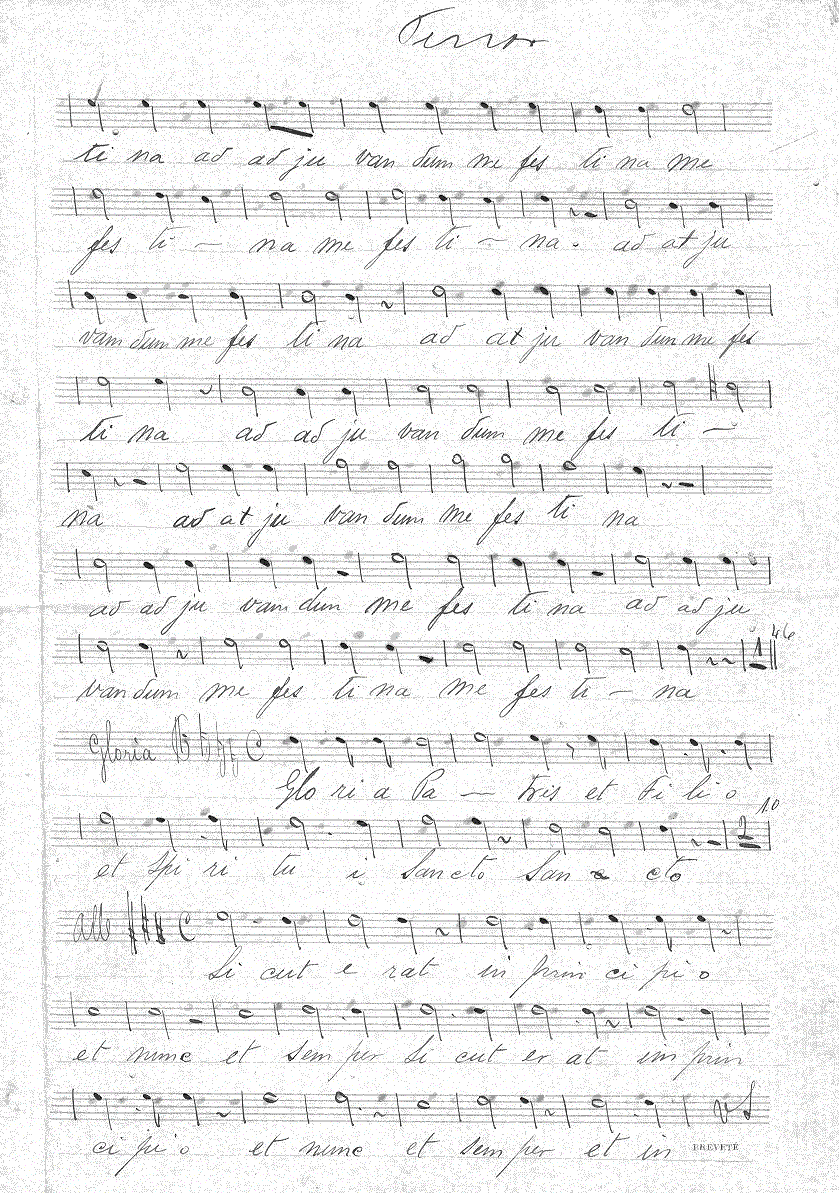 Tenor
ti na ad ad ju van dum me fes ti na me
fes ti — na me fes ti — na. ad at ju
van dum me fes ti na ad at ju van dum me fes
ti na ad ad ju van dum me fes ti —
na ad at ju van dum me fes ti na
ad ad ju vam dum me fes ti na ad ad ju
46
van dum me fes ti na me fes ti — na
1
Gloria C
Glo ri a Pa — tris et Fi li o
10
2
et Spi ri tu i Sancto San c cto
alle C
Si cut e rat in prin ci pi o
et nunc et sem per Si cut er at im prin
VS
ci pi o et nunc et sem per et in BREVETÉ